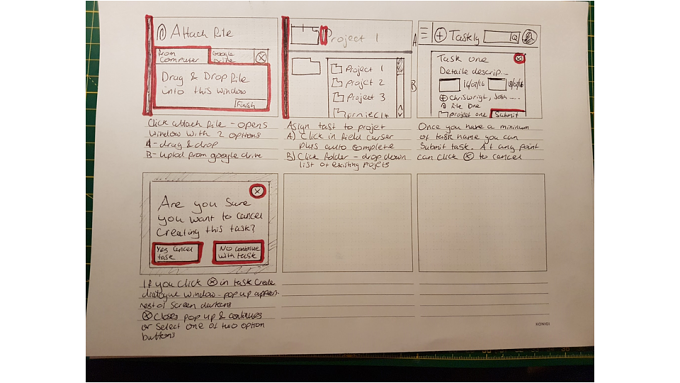 Attach file
From Computer
Google Drive
Drag & Drop file
into this window
Finish
Click attach file - opens
window with 2 options
A - drag & drop
B - upload from google drive
Project 1
A
Project 1
Projct 2
Project 3
B
Asign task to projet
A) Click in field curser
plus auto complete
B) Click folder - drop down
list of existing Projcts
Taskly
Task one
Detaile descrip...
File One
Project one
Submit
Once you have a minimum
of task name you can
Submit task. At any point
can click ⊗ to cancel
Are you sure
you want to cancel
Creating this task?
Yes cancel
task
No continue
with task
If you click ⊗ in task create
dialogue window - pop up appears
rest of screen darkens
⊗ Closes pop up & continues
or Select one of two option
buttons